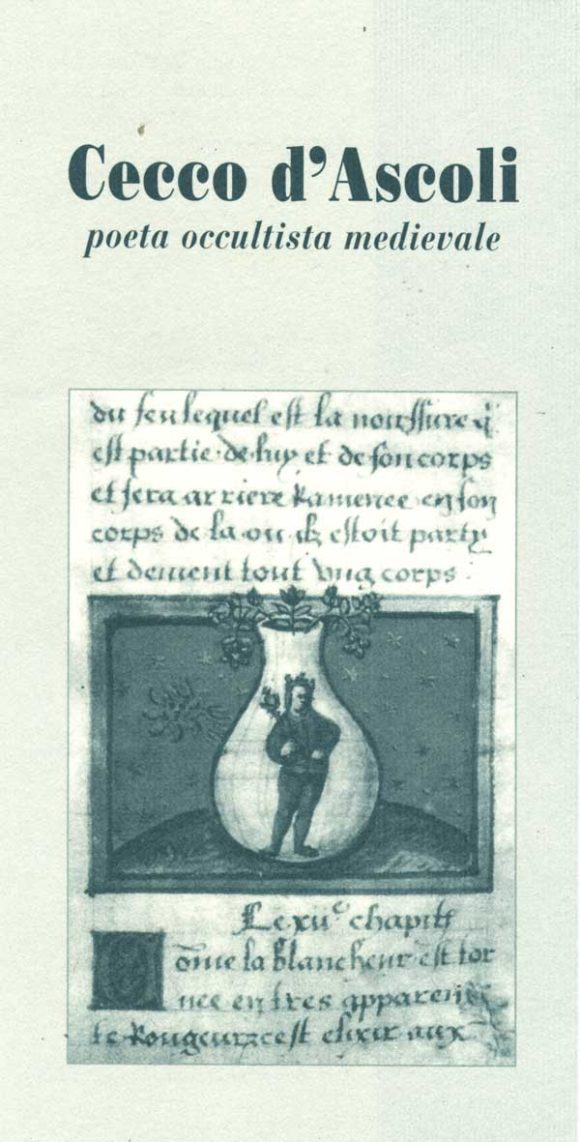 Cecco d'Ascoli
poeta occultista medievale
du feu lequel est la nourssure
est partie de luy et de son corps
et sera arriere Ramenee en son
corps de la ou ilz estoit party
et devient tout vng corps
Le xii^e chapit
la blancheur est tor
nee en tres apparen
te Rougeur cest elixir aux